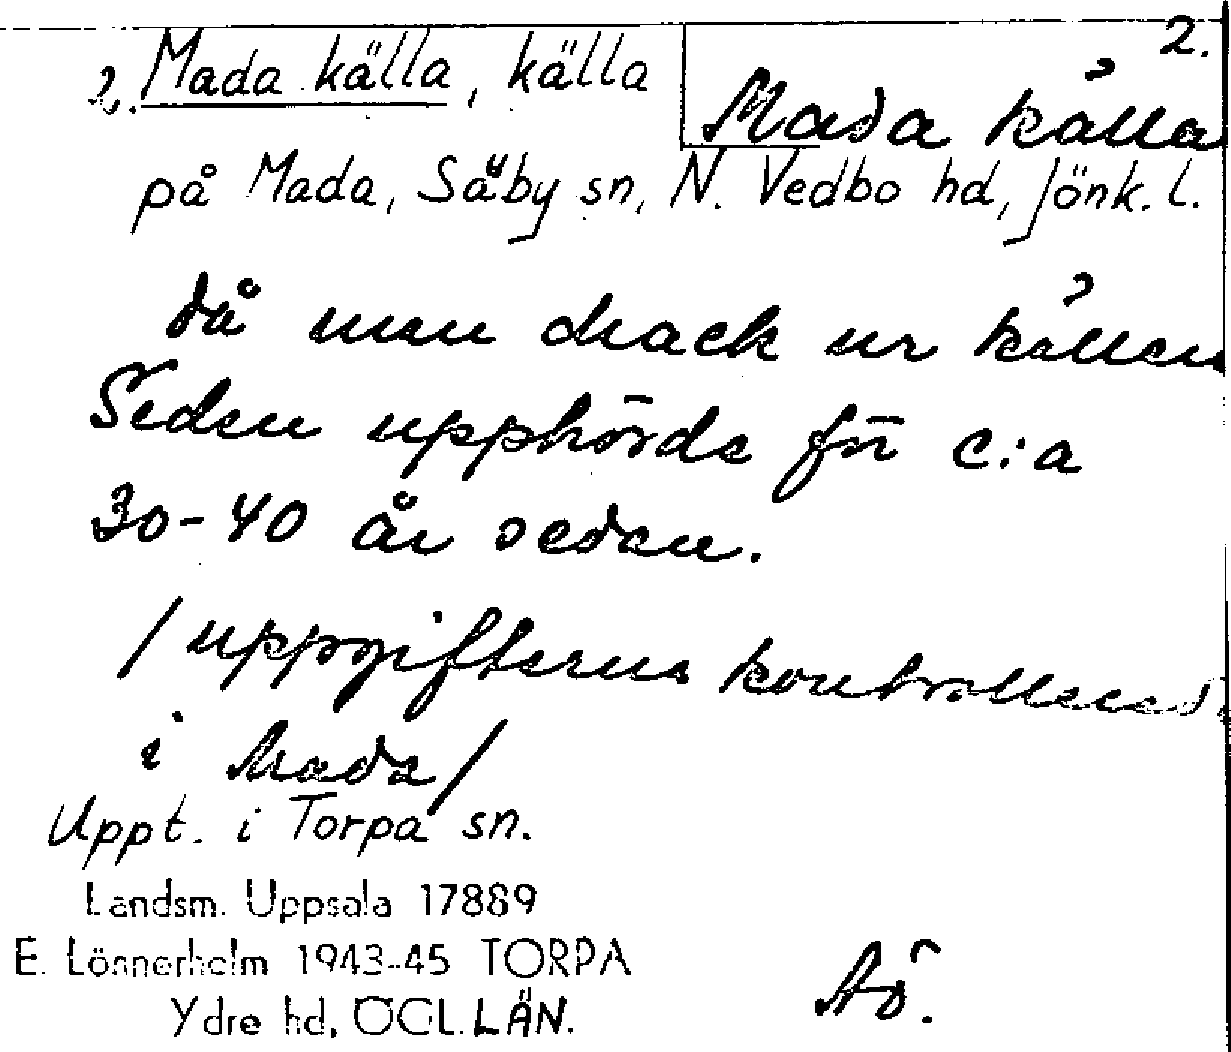 2.
2. Mada källa, källa
Mada källa
på Mada, Säby sn, N. Vedbo hd, Jönk. l.
då man drack ur källan
Seden upphörde för c:a
30-40 år sedan.
/uppgifterna kontrollerad.
i Mada/
Uppt. i Torpa sn.
Landsm. Uppsala 17889
E. Lönnerholm 1943-45 TORPA
Ydre hd, ÖGL. LÄN.
Aö.